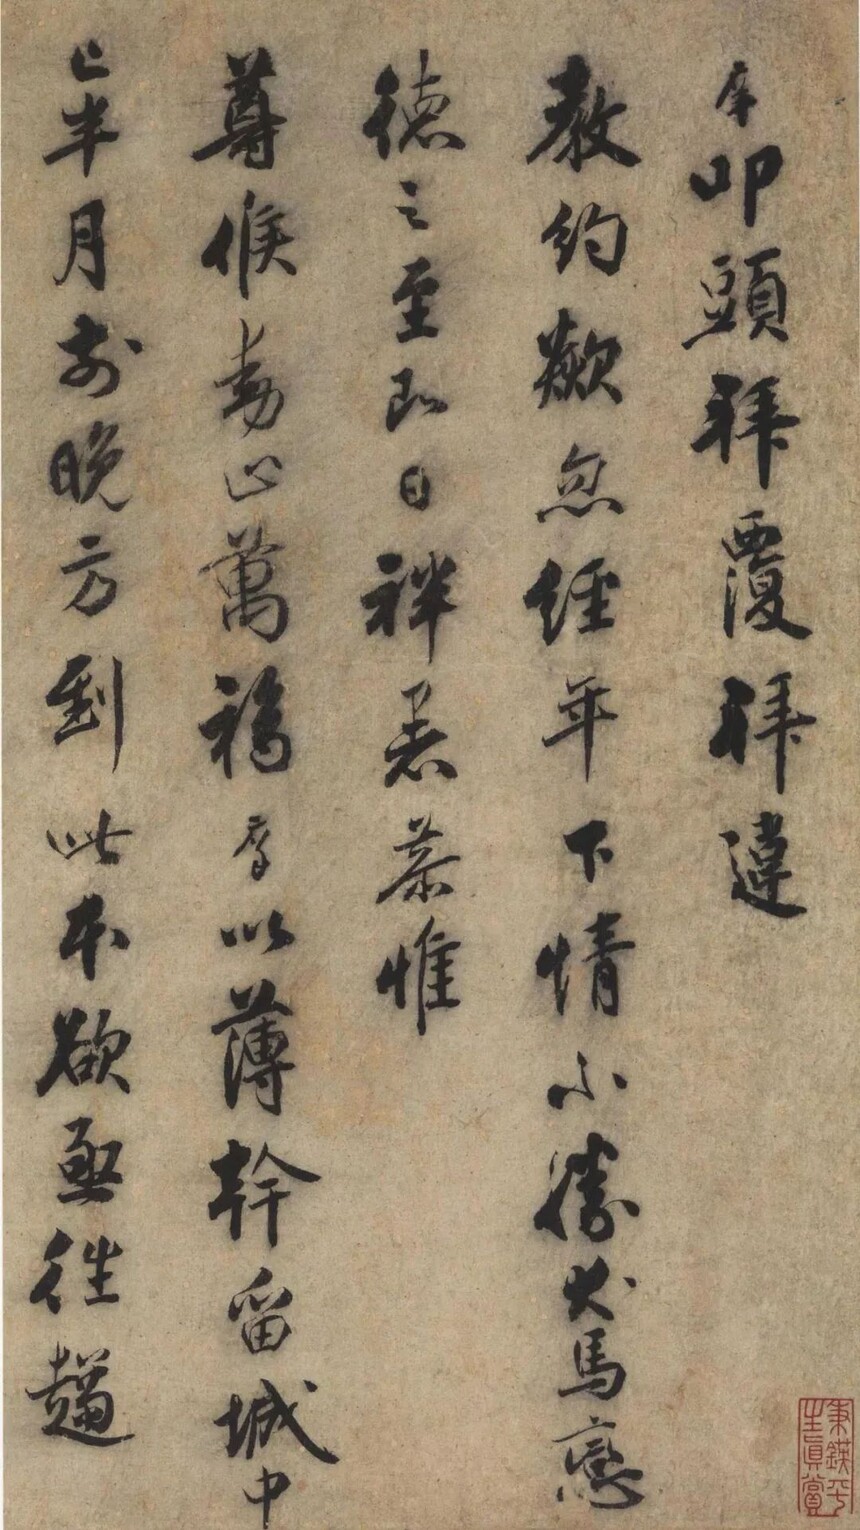 序叩頭拜覆拜違
教約歘忽經年下情不勝犬馬戀
德之至即日祥暑恭惟
尊候動止萬福序以薄幹留城中
已半月前晚方到此本欲亟往趨